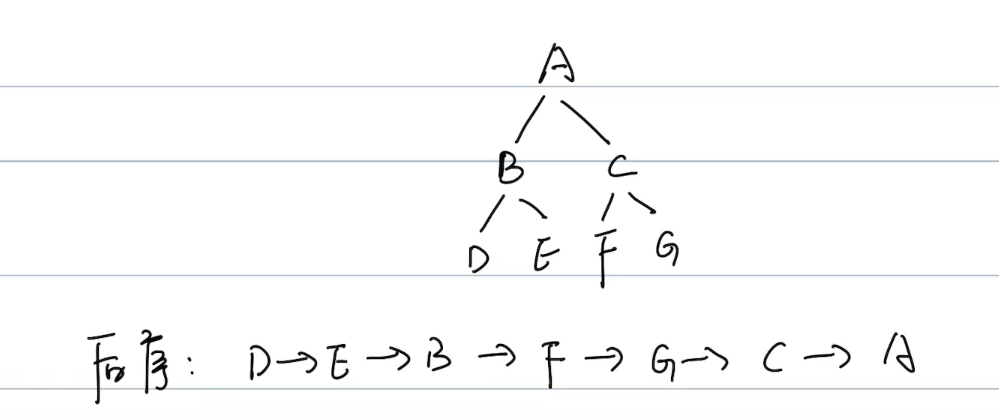 A
B C
D E F G
后序: D→E→B→F→G→C→A